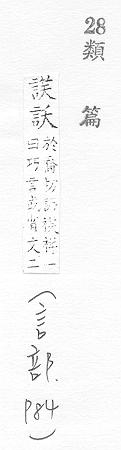 28
類
篇
訞
於喬切訞祥一
曰巧言或省文二
(言部. P84)